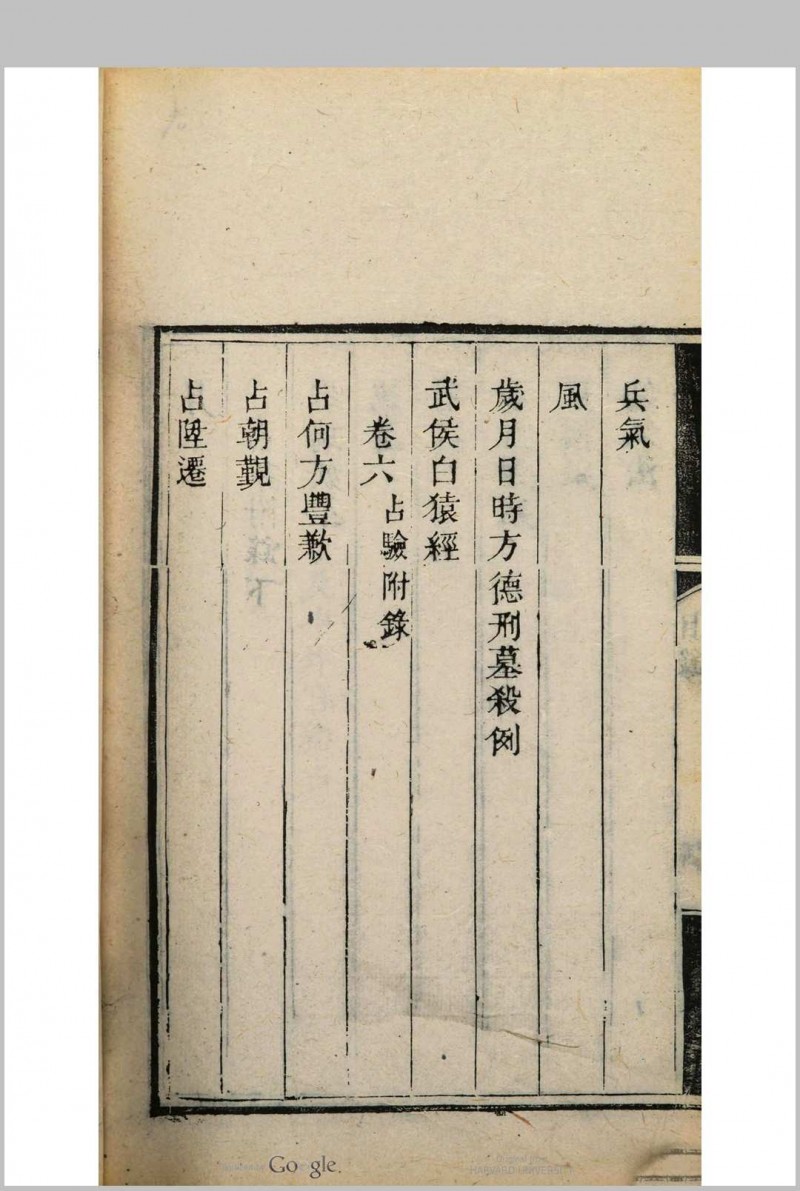 兵氣
風
歲月日時方德刑墓殺例
武侯白猿經
卷六 占驗附錄
占何方豐歉
占朝覲
占陞遷
Google